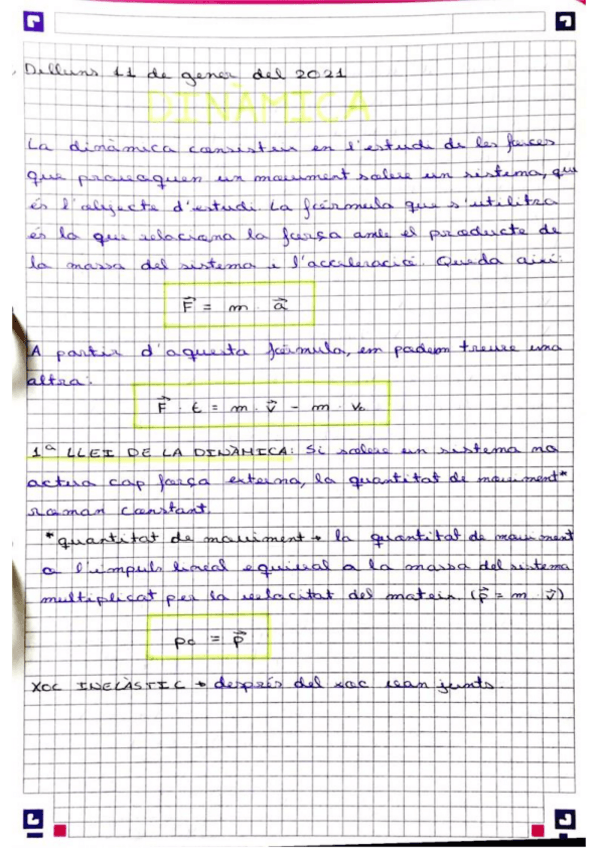 Dilluns 11 de gener del 2021
DINÀMICA
La dinàmica consisteix en l'estudi de les forces
que provoquen un moviment sobre un sistema, que
és l'objecte d'estudi. La fórmula que s'utilitza
és la que relaciona la força amb el producte de
la massa del sistema i l'acceleració. Queda així:
F⃗ = m · a⃗
A partir d'aquesta fórmula, em podem treure una
altra:
F⃗ · t = m · v⃗ - m · v₀
1ª LLEI DE LA DINÀMICA: Si sobre un sistema no
actua cap força externa, la quantitat de moviment*
roman constant.
*quantitat de moviment → la quantitat de moviment
o l'impuls lineal equival a la massa del sistema
multiplicat per la velocitat del mateix. (p⃗ = m · v⃗)
p₀ = p⃗
XOC INELÀSTIC → després del xoc van junts.